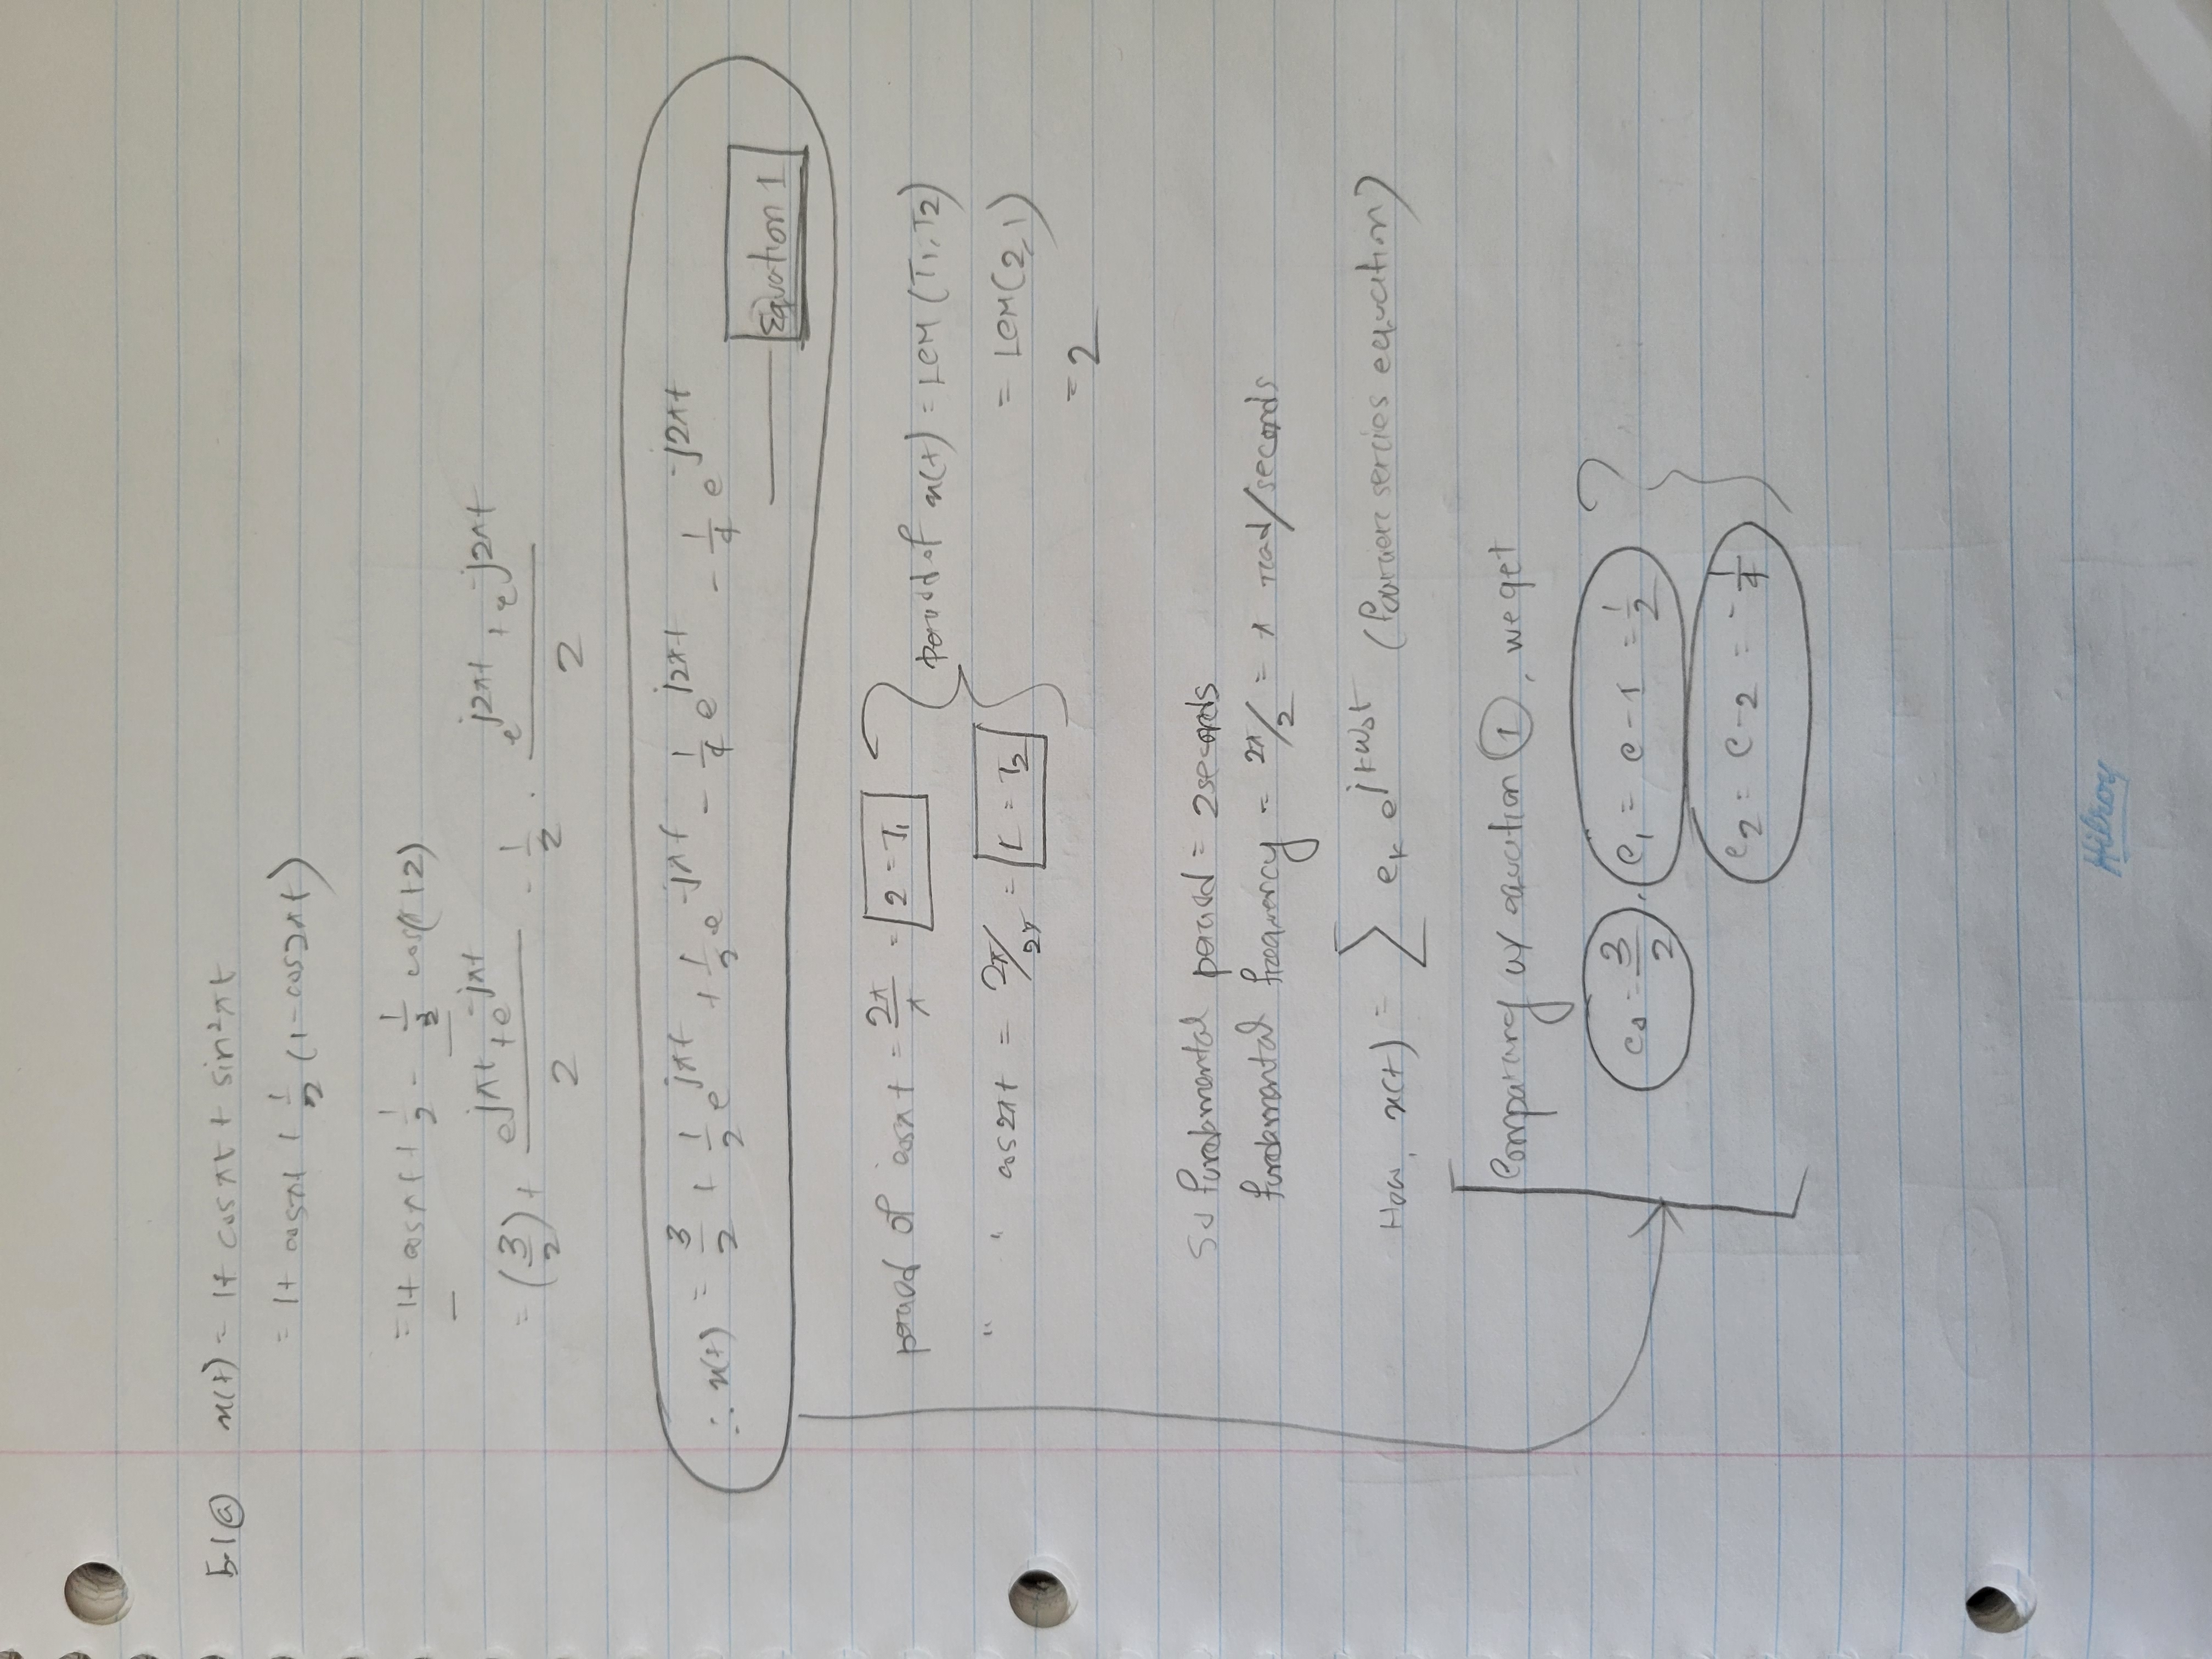 5.1 (a) x(t) = 1 + cos πt + sin²πt
= 1 + cos πt + 1/2 (1 - cos2πt)
= 1 + cos πt + 1/2 - 1/2 cos(πt2)
= (3/2) + (e^jπt + e^-jπt)/2 - 1/2 · (e^j2πt + e^-j2πt)/2
∴ x(t) = 3/2 + 1/2 e^jπt + 1/2 e^-jπt - 1/4 e^j2πt - 1/4 e^-j2πt
Equation 1
period of cosπt = 2π/π = 2 = T1
period of x(t) = LCM (T1, T2)
" " cos2πt = 2π/2π = 1 = T2
= LCM(2,1)
= 2
So fundamental period = 2 seconds
fundamental frequency = 2π/2 = π rad/seconds
Now, x(t) = ∑ ck e^jkω0t (fourier series equation)
Comparing w/ equation (1), we get
c0 = 3/2, c1 = c-1 = 1/2
c2 = c-2 = -1/4
Hilroy